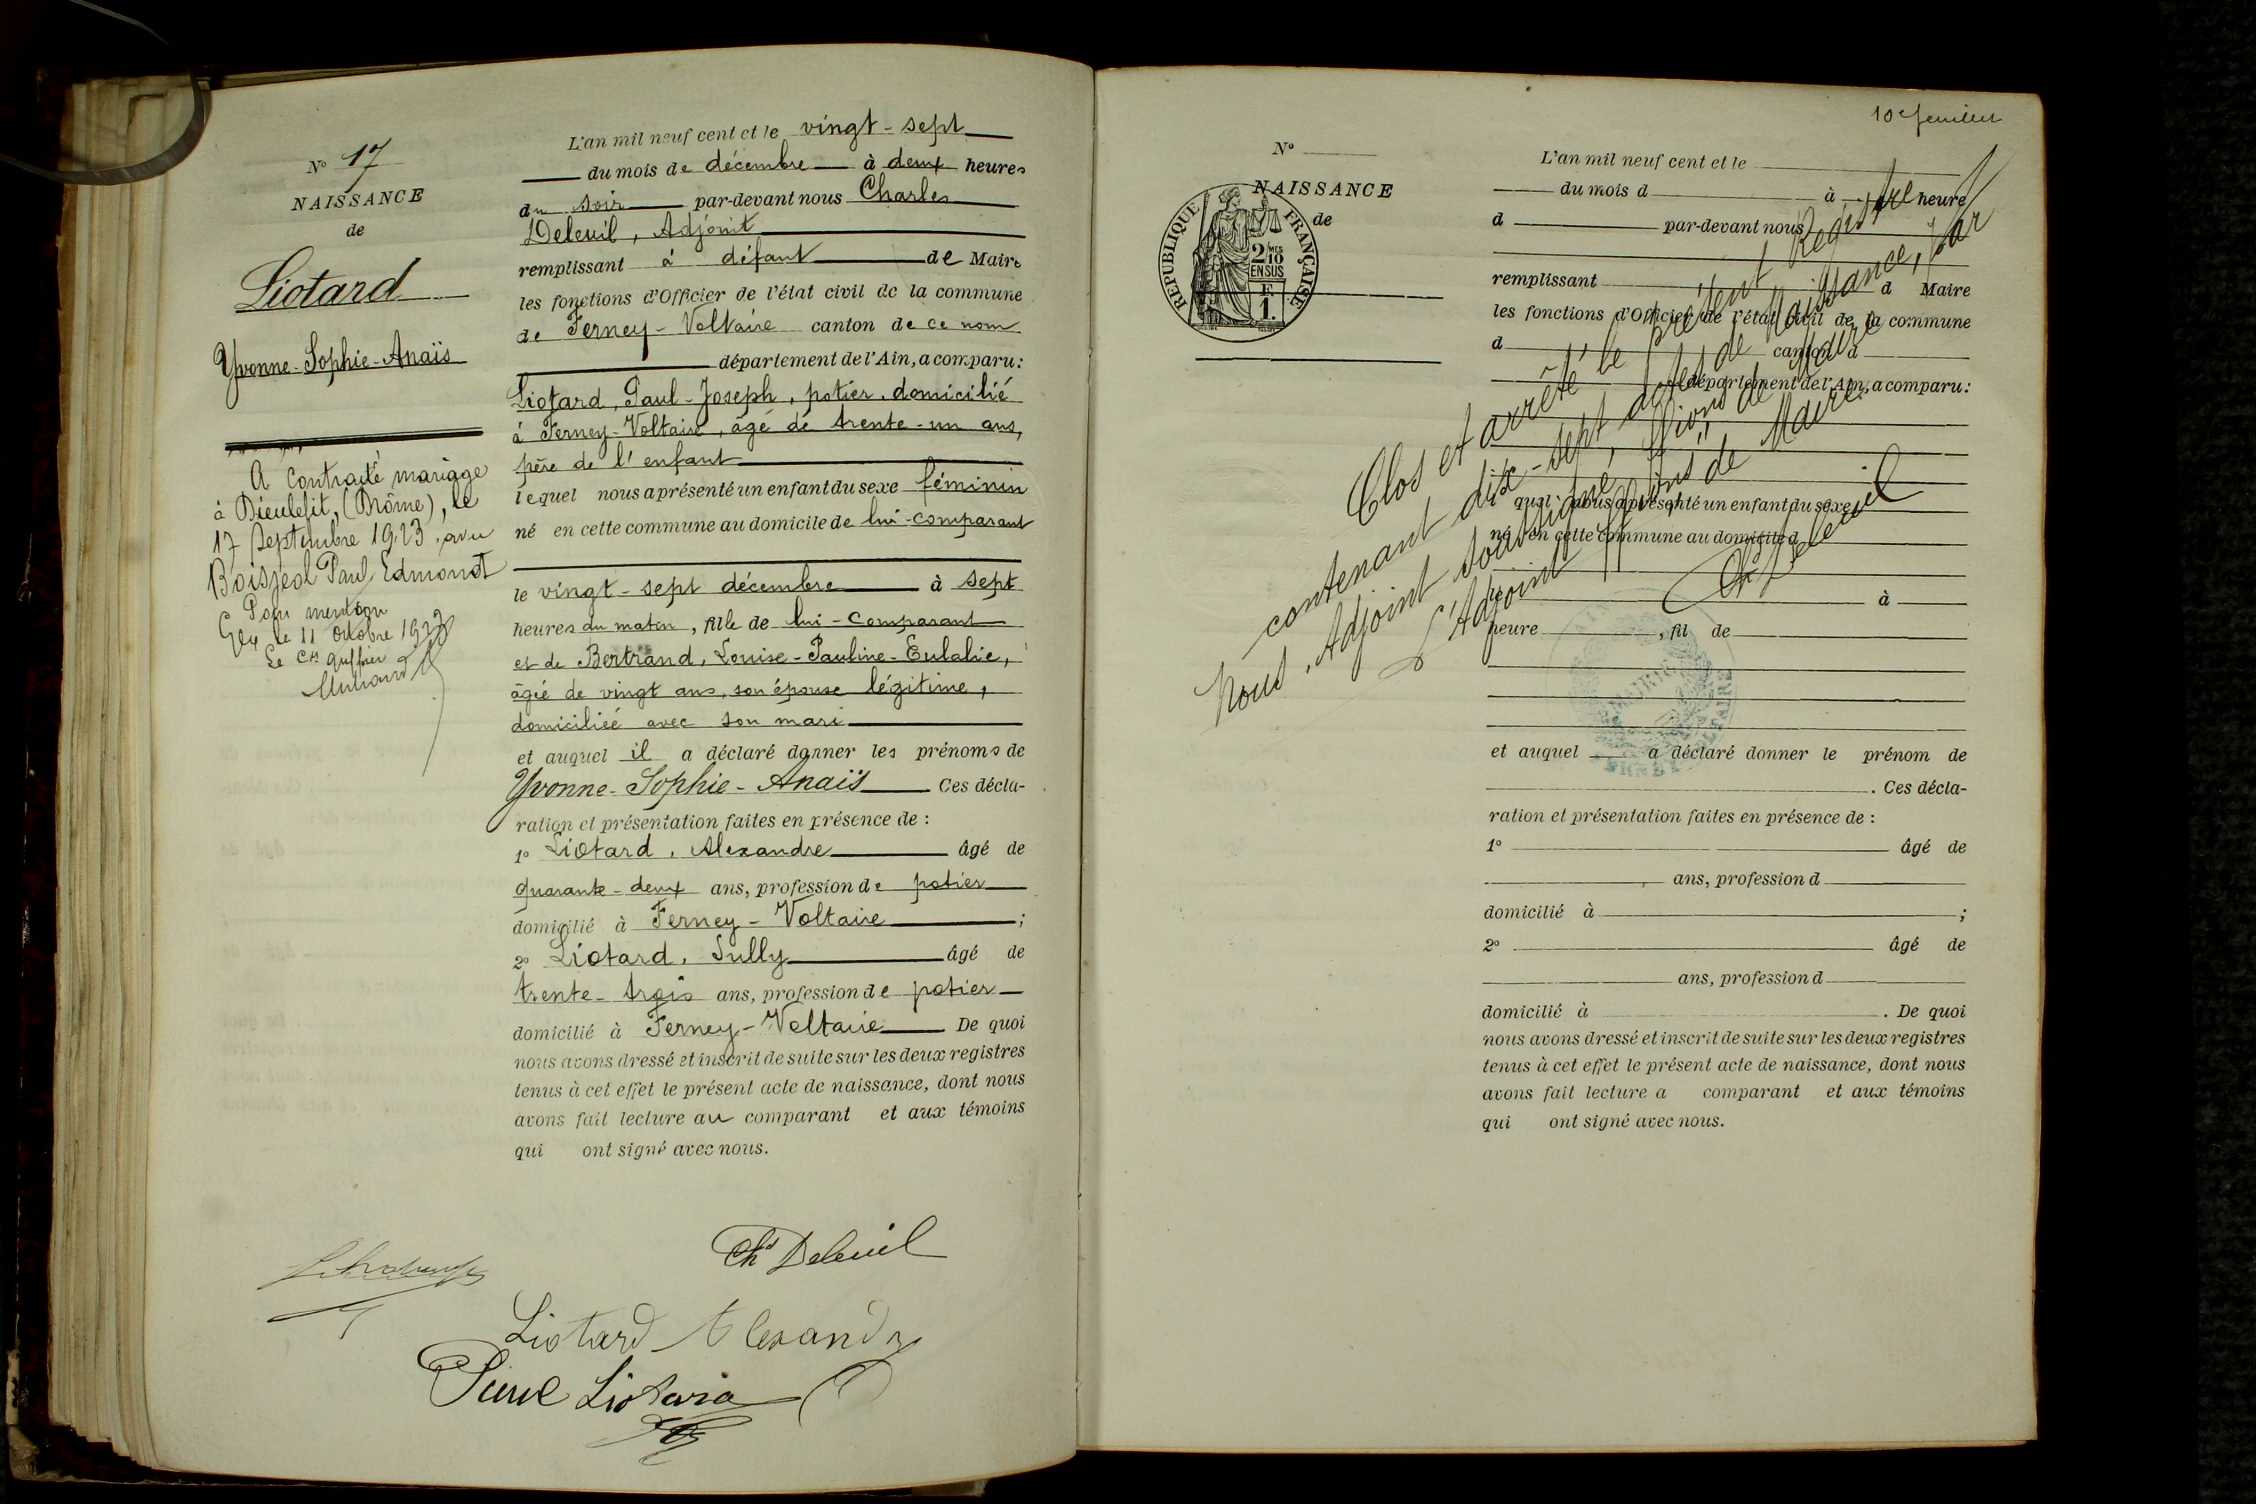 N° 17
NAISSANCE
de
Liotard
Yvonne-Sophie-Anaïs
A contracté mariage
à Dieulefit, (Drôme), le
17 Septembre 1923, avec
Boisjeol Paul Edmond
Pour mention
Gex le 11 Octobre 1923
Le Cis greffier
L'an mil neuf cent et le vingt-sept
du mois de décembre à deux heures
du soir par-devant nous Charles
Deleuil, Adjoint
remplissant à défaut de Maire
les fonctions d'Officier de l'état civil de la commune
de Ferney-Voltaire canton de ce nom
département de l'Ain, a comparu:
Liotard, Paul-Joseph, potier, domicilié
à Ferney-Voltaire, âgé de trente-un ans,
père de l'enfant
lequel nous a présenté un enfant du sexe féminin
né en cette commune au domicile de lui-comparant
le vingt-sept décembre à sept
heures du matin, fille de lui-comparant
et de Bertrand, Louise-Pauline-Eulalie,
âgée de vingt ans, son épouse légitime,
domiciliée avec son mari
et auquel il a déclaré donner les prénoms de
Yvonne-Sophie-Anaïs Ces décla-
ration et présentation faites en présence de :
1° Liotard, Alexandre âgé de
quarante-deux ans, profession de potier
domicilié à Ferney-Voltaire ;
2° Liotard, Sully âgé de
trente-trois ans, profession de potier
domicilié à Ferney-Voltaire De quoi
nous avons dressé et inscrit de suite sur les deux registres
tenus à cet effet le présent acte de naissance, dont nous
avons fait lecture au comparant et aux témoins
qui ont signé avec nous.
Ch Deleuil
Liotard Alexandre
Liotard
10e feuillet
N°
NAISSANCE
de
RÉPUBLIQUE FRANÇAISE
2 MES
10
EN SUS
F
1.
L'an mil neuf cent et le
du mois d à heure
d par-devant nous
remplissant d Maire
les fonctions d'Officier de l'état civil de la commune
d canton d
département de l'Ain, a comparu:
quel nous a présenté un enfant du sexe
né en cette commune au domicile d
le à
heure , fil de
et auquel a déclaré donner le prénom de
. Ces décla-
ration et présentation faites en présence de :
1° âgé de
ans, profession d
domicilié à ;
2° âgé de
ans, profession d
domicilié à . De quoi
nous avons dressé et inscrit de suite sur les deux registres
tenus à cet effet le présent acte de naissance, dont nous
avons fait lecture a comparant et aux témoins
qui ont signé avec nous.
Clos et arrêté le présent Registre
contenant dix-sept actes de Naissance, par
Nous, Adjoint soussigné,
L'Adjoint de Maire
Ch Deleuil
MAIRIE